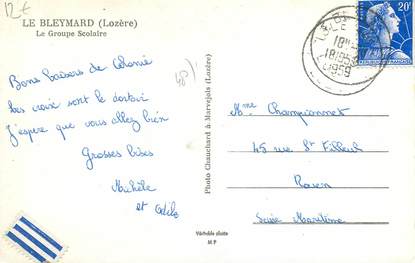 12€
LE BLEYMARD (Lozère)
Le Groupe Scolaire
Bons baisers de Colonie
les croix sont le dortoir
J'espère que vous allez bien
Grosses bises
Michèle
et Odile
(48)
Photo Chauchard à Marvejols (Lozère)
Véritable photo
M P
20F
18H
1959
Mme Championnet
45 rue St Filleul
Rouen
Seine Maritime